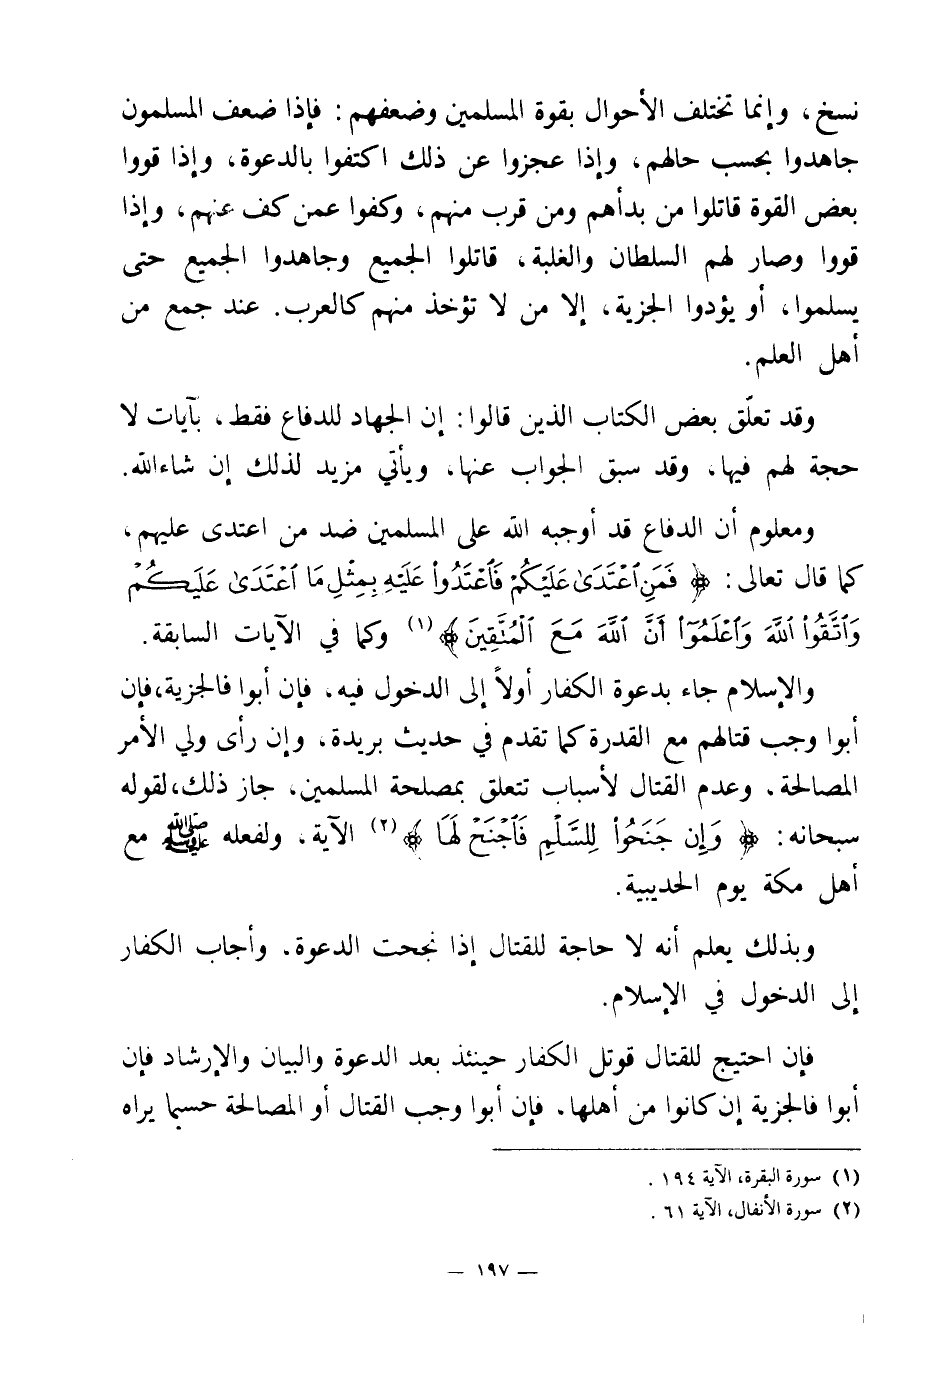 نسخ، وإنما تختلف الأحوال بقوة المسلمين وضعفهم: فإذا ضعف المسلمون
جاهدوا بحسب حالهم، وإذا عجزوا عن ذلك اكتفوا بالدعوة، وإذا قووا
بعض القوة قاتلوا من بدأهم ومن قرب منهم، وكفوا عمن كف عنهم، وإذا
قووا وصار لهم السلطان والغلبة، قاتلوا الجميع وجاهدوا الجميع حتى
يسلموا، أو يؤدوا الجزية، إلا من لا تؤخذ منهم كالعرب. عند جمع من
أهل العلم.
وقد تعلّق بعض الكتاب الذين قالوا: إن الجهاد للدفاع فقط، بآيات لا
حجة لهم فيها، وقد سبق الجواب عنها، ويأتي مزيد لذلك إن شاءالله.
ومعلوم أن الدفاع قد أوجبه الله على المسلمين ضد من اعتدى عليهم،
كما قال تعالى: ﴿ فَمَنِ ٱعْتَدَىٰ عَلَيْكُمْ فَٱعْتَدُوا۟ عَلَيْهِ بِمِثْلِ مَا ٱعْتَدَىٰ عَلَيْكُمْ
وَٱتَّقُوا۟ ٱللَّهَ وَٱعْلَمُوٓا۟ أَنَّ ٱللَّهَ مَعَ ٱلْمُتَّقِينَ﴾(١) وكما في الآيات السابقة.
والإسلام جاء بدعوة الكفار أولاً إلى الدخول فيه. فإن أبوا فالجزية،فإن
أبوا وجب قتالهم مع القدرة كما تقدم في حديث بريدة، وإن رأى ولي الأمر
المصالحة. وعدم القتال لأسباب تتعلق بمصلحة المسلمين، جاز ذلك،لقوله
سبحانه: ﴿ وَإِن جَنَحُوا۟ لِلسَّلْمِ فَٱجْنَحْ لَهَا ﴾(٢) الآية، ولفعله ﷺ مع
أهل مكة يوم الحديبية.
وبذلك يعلم أنه لا حاجة للقتال إذا نجحت الدعوة. وأجاب الكفار
إلى الدخول في الإسلام.
فإن احتيج للقتال قوتل الكفار حينئذ بعد الدعوة والبيان والإرشاد فإن
أبوا فالجزية إن كانوا من أهلها. فإن أبوا وجب القتال أو المصالحة حسبما يراه
(١) سورة البقرة، الآية ١٩٤ .
(٢) سورة الأنفال، الآية ٦١ .
— ١٩٧ —